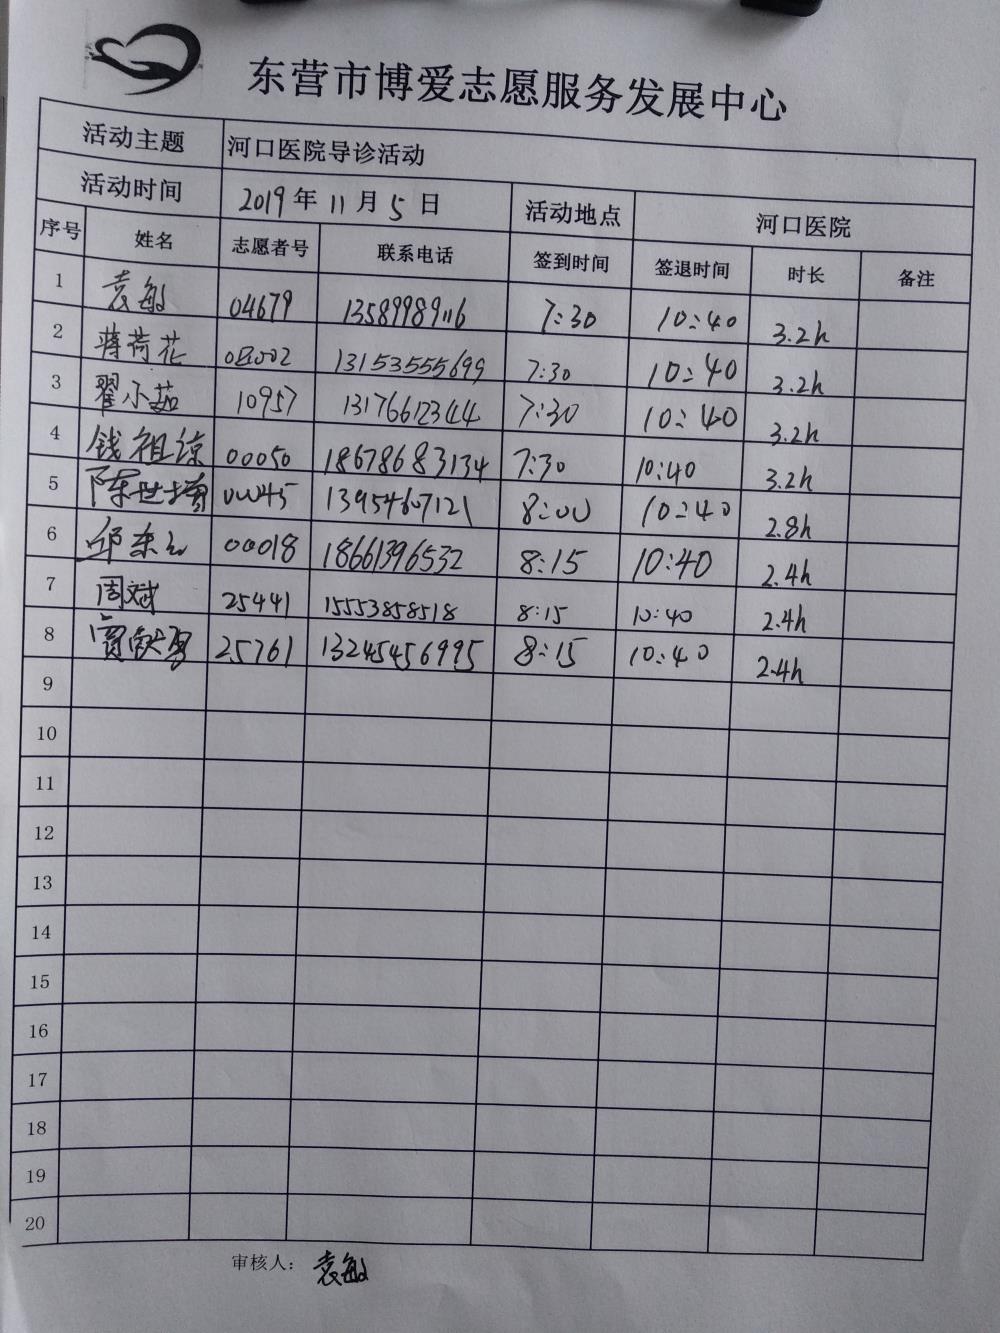 东营市博爱志愿服务发展中心
活动主题 河口医院导诊活动
活动时间 2019年11月5日 活动地点 河口医院
序号 姓名 志愿者号 联系电话 签到时间 签退时间 时长 备注
1 袁敏 04679 13589989116 7:30 10:40 3.2h
2 蒋荷花 13153555699 7:30 10:40 3.2h
3 翟小茹 10957 13176612344 7:30 10:40 3.2h
4 钱祖谅 00050 18678683134 7:30 10:40 3.2h
5 陈世增 00045 13954607121 8:00 10:40 2.8h
6 00018 18661396532 8:15 10:40 2.4h
7 周斌 25441 15553858518 8:15 10:40 2.4h
8 25761 13245456995 8:15 10:40 2.4h
9
10
11
12
13
14
15
16
17
18
19
20
审核人：袁敏